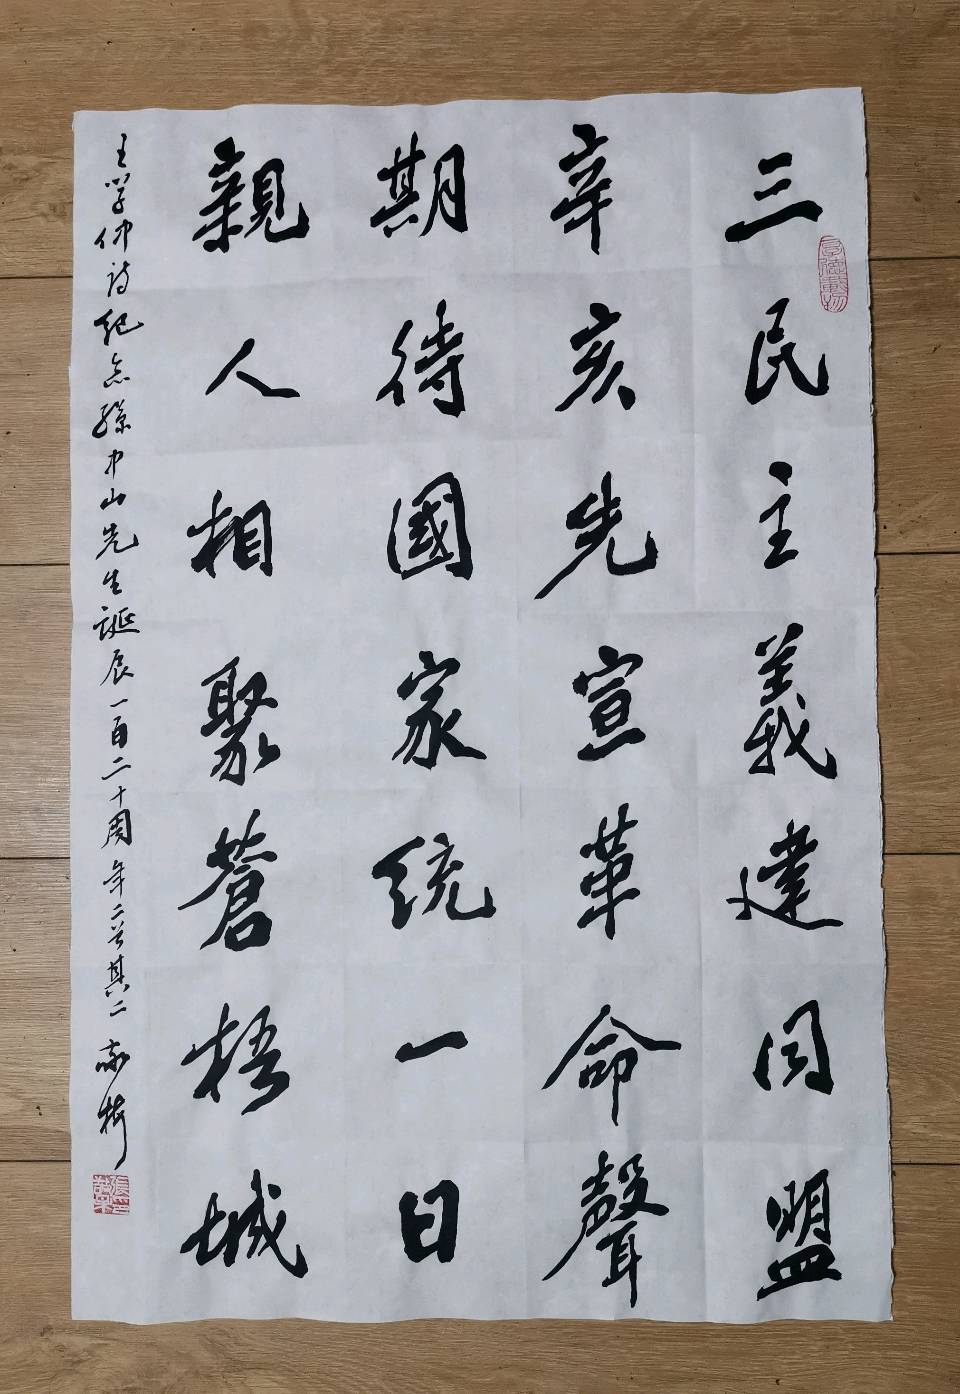 三民主義建同盟
辛亥先宣革命聲
期待國家統一日
親人相聚蒼梧城
王学仲诗纪念孫中山先生誕辰一百二十周年二首其二
厚德載物